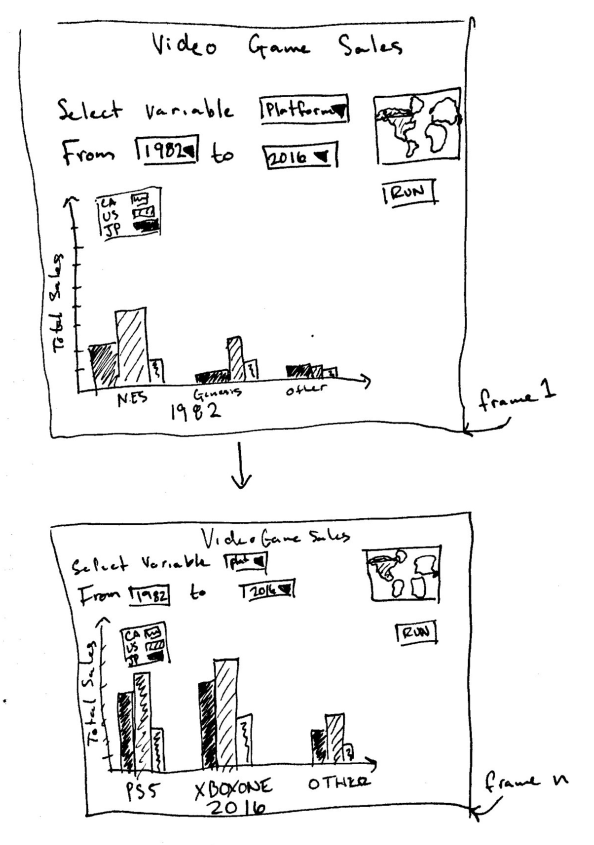 Video Game Sales
Select variable Platform
From 1982 to 2016
RUN
CA
US
JP
Total Sales
NES Genesis Other
1982
frame 1
Video Game Sales
Select Variable plat
From 1982 to 2016
RUN
CA
US
JP
Total Sales
PS5 XBOXONE OTHER
2016
frame n